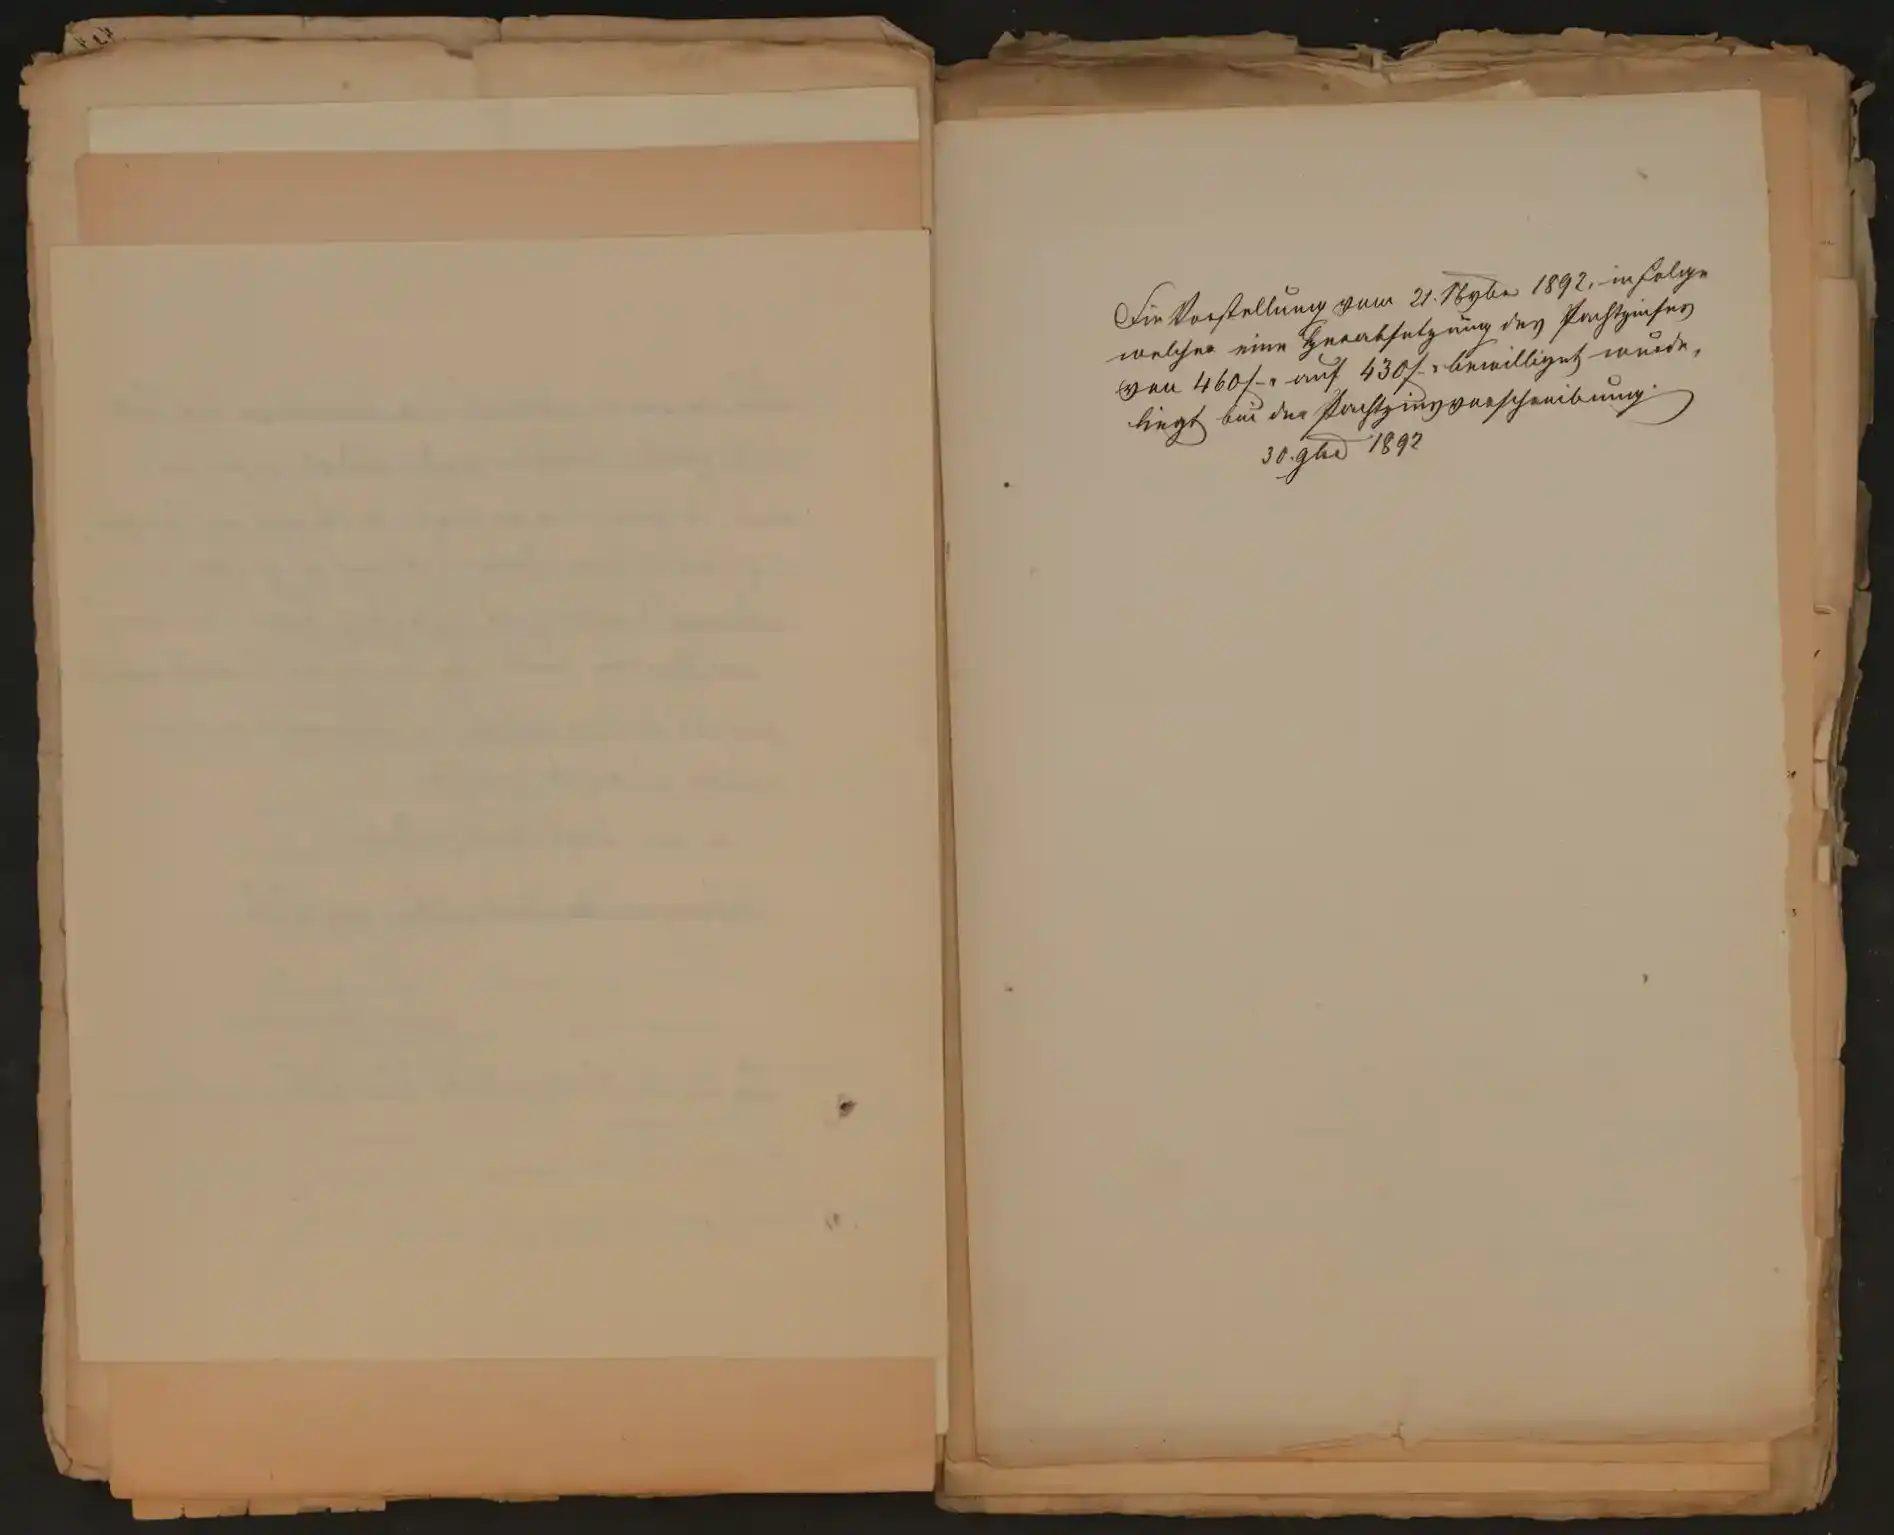 Die Vorstellung vom 21. Novbr 1892, in Folge
welcher eine Herabsetzung des Pachtzinses
von 460 f – auf 430 f – bewilliget wurde,
liegt bei der Pachtzinsvorschreibung.
30. 9br 1892